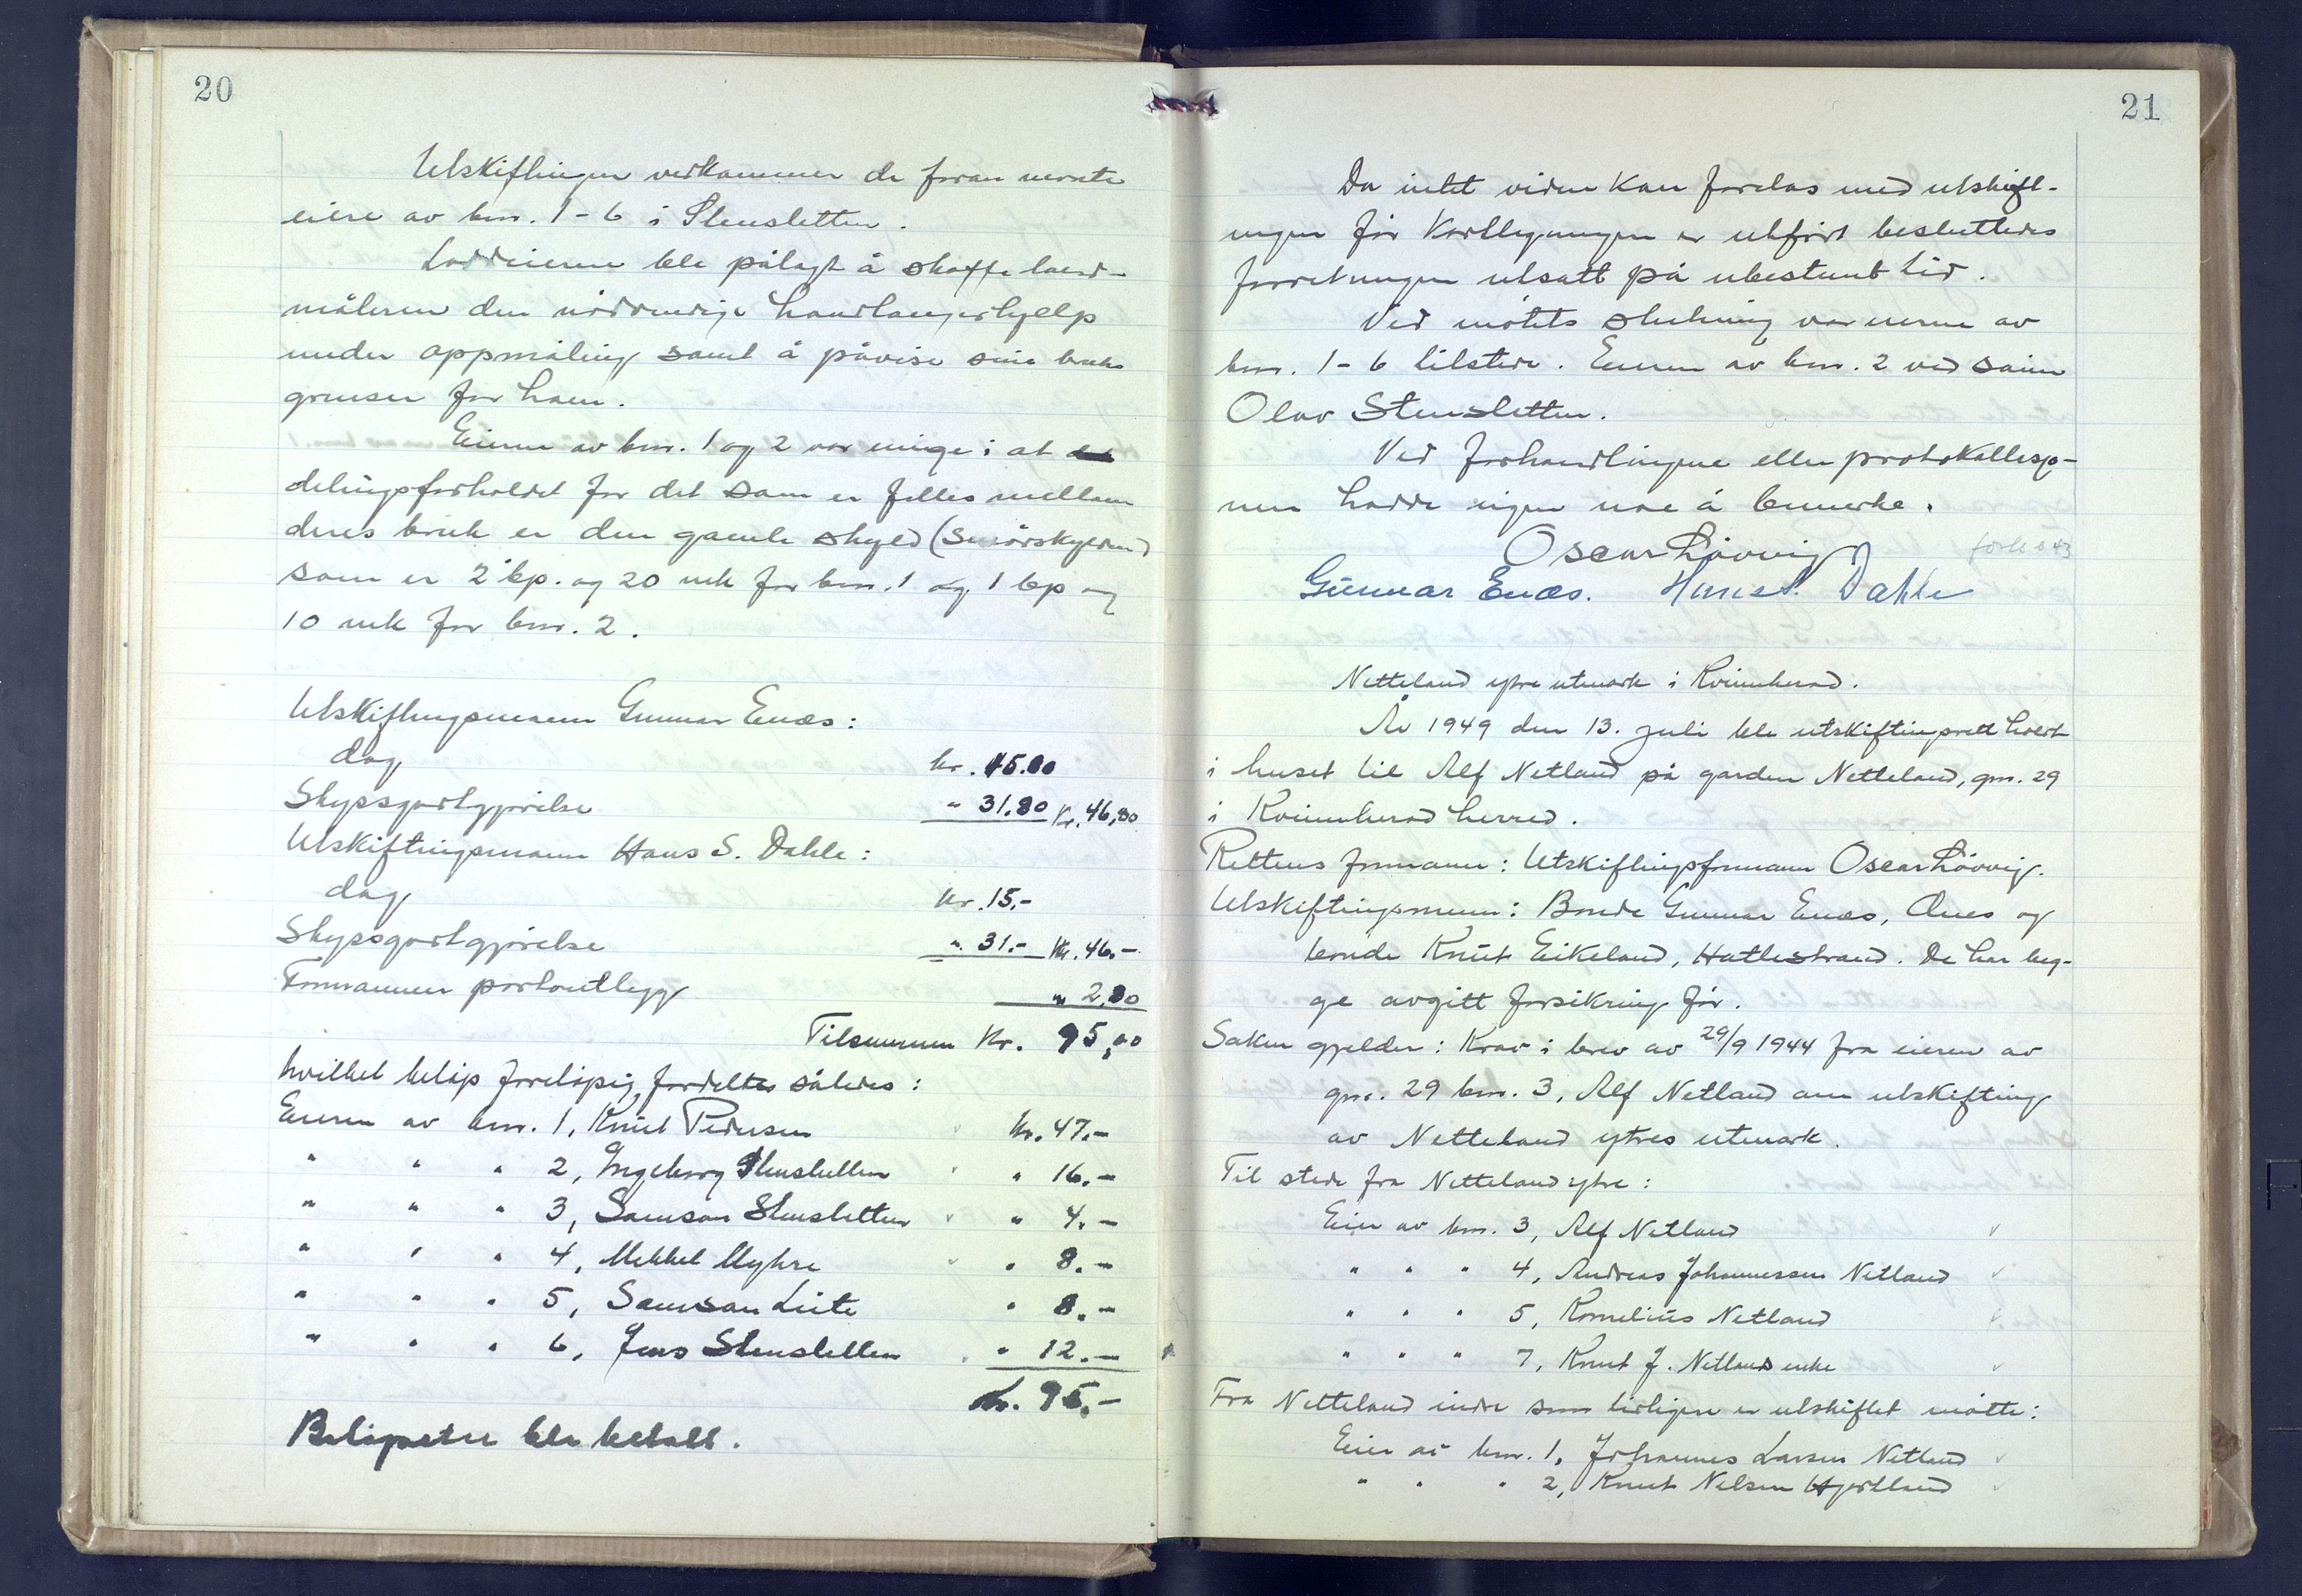 20
Utskiftingen vedkommer de foran nevnte
eiere av bnr. 1-6 i Stensletten.
Loddeierne ble pålagt å skaffe land-
måleren den nödvendige handlangerhjelp
under oppmåling samt å påvise sine bruks
grenser for ham.
Eierne av bnr. 1 og 2 var enige i at
delingsforholdet for det som er felles mellom
deres bruk er den gamle skyld (Smörskylden)
som er 2 bp. og 20 mk for bnr. 1 og 1 bp og
10 mk for bnr. 2.
Utskiftingsmann Gunnar Enæs:
dag kr. 15.00
Skyssgodtgjörelse " 31,80 Kr. 46,80
Utskiftingsmann Hans S. Dahle:
dag kr. 15,-
Skyssgodtgjörelse " 31.- Kr. 46.-
Formannen portoutlegg " 2,20
Tilsammen Kr. 95,00
hvilket belöp forelöpig fordeltes således:
Eieren av bnr. 1, Knut Pedersen Kr. 47.-
" " " 2, Ingeborg Stensletten " 16.-
" " " 3, Samson Stensletten " 4.-
" " " 4, Mikkel Myhre " 8.-
" " " 5, Samson Leite " 8.-
" " " 6, Jens Stensletten " 12.-
Kr. 95.-
Belöpene ble betalt.
21
Da intet videre kan foretas med utskift-
ingen för kartleggingen er utfört besluttedes
forretningen utsatt på ubestemt tid.
Ved mötets slutning var eierne av
bnr. 1-6 tilstede. Eieren av bnr. 2 ved sönn
Olav Stensletten.
Ved forhandlingene eller protokollasjo-
nen hadde ingen noe å bemerke.
Oscar Lövvig
Gunnar Enæs. Hans S. Dahle
Netteland ytre utmark i Kvinnherad.
År 1949 den 13. juli ble utskiftingsrett holdt
i huset til Alf Netland på garden Netteland, gnr. 29
i Kvinnherad herred.
Rettens formann: Utskiftingsformann Oscar Lövvig.
Utskiftingsmenn: Bonde Gunnar Enæs, Ænes og
bonde Knut Eikeland, Hatlestrand. De har beg-
ge avgitt forsikring för.
Saken gjelder: Krav i brev av 29/9 1944 fra eieren av
gnr. 29 bnr. 3, Alf Netland om utskifting
av Netteland ytres utmark.
Til stede fra Netteland ytre:
Eier av bnr. 3, Alf Netland
" " " 4, Andreas Johannessen Netland
" " " 5, Kornelius Netland
" " " 7, Knut J. Netlands enke
Fra Netteland indre som tidligere er utskiftet mötte:
Eier av bnr. 1, Johannes Larsen Netland
" " " 2, Knut Nelsen Hjortland